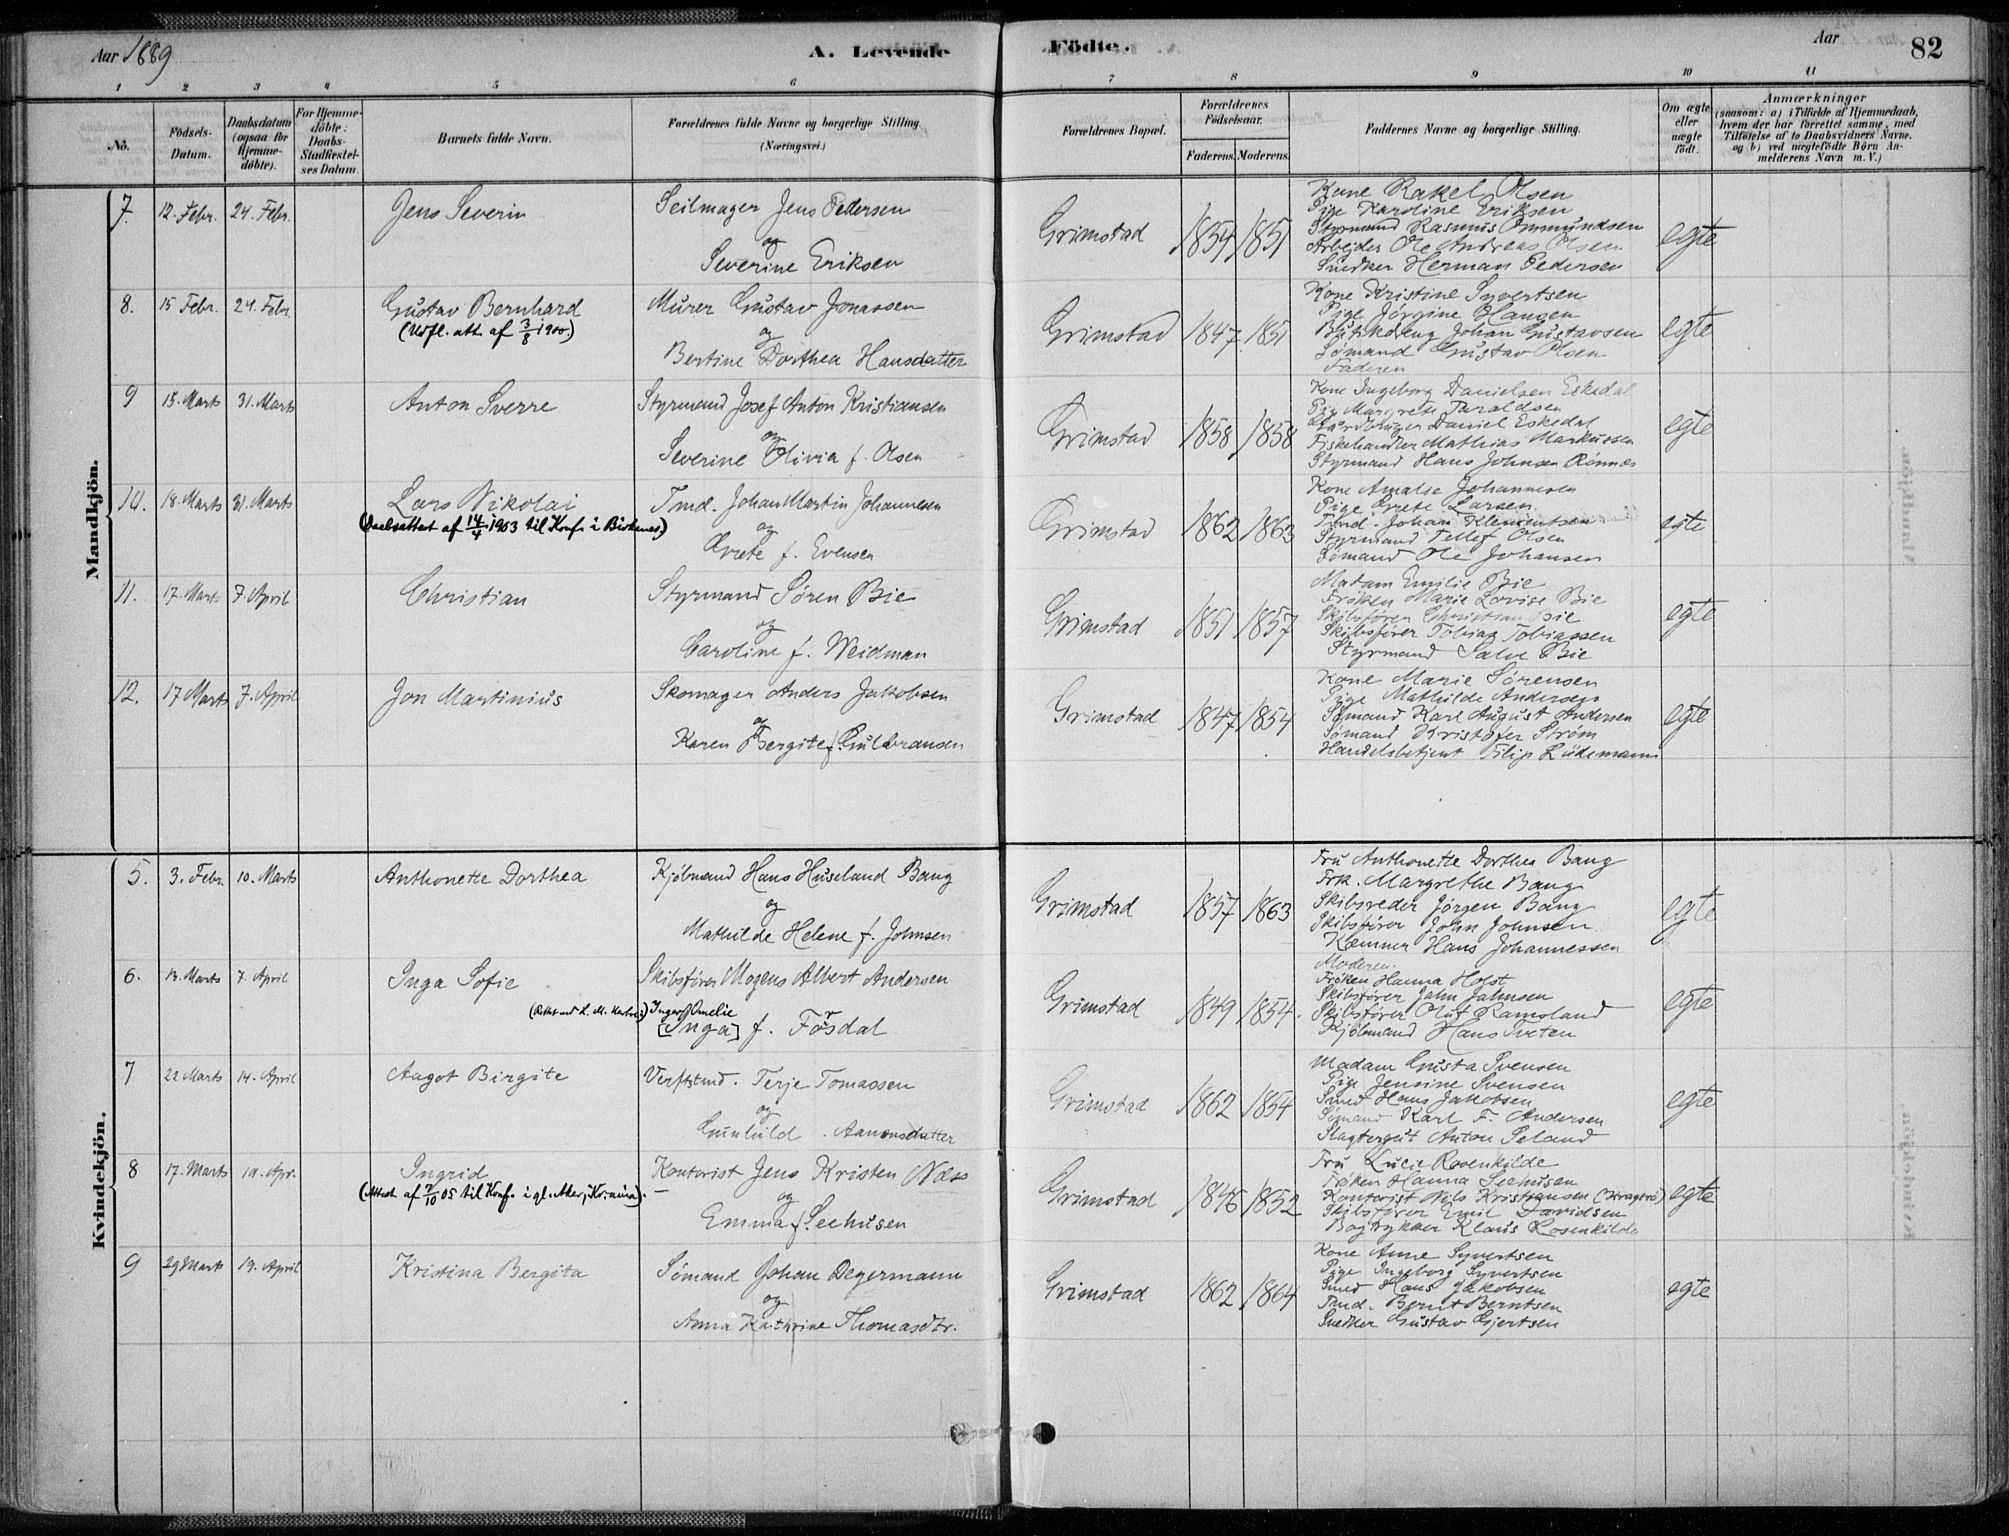 Aar 1889
A. Levende Födte.
Aar
82
1 2 3 4 5 6 7 8 9 10 11
No.
Födsels-Datum.
Daabsdatum (ogsaa for Hjemme-döbte).
For Hjemme-döbte: Daabs-Stadfæstel-ses Datum.
Barnets fulde Navn.
Forældrenes fulde Navne og borgerlige Stilling. (Næringsvei.)
Forældrenes Bopæl.
Forældrenes Födselsaar.
Faderens. Moderens.
Faddernes Navne og borgerlige Stilling.
Om ægte eller uægte födt.
Anmærkninger
(saasom: a) i Tilfælde af Hjemmedaab, hvem der har forrettet samme, med Tilföielse af to Daabsvidners Navne, og b) ved uægtefödte Börn An-melderens Navn m. V.)
Mandkjön.
7. 12. Febr. 24. Febr. Jens Severin
Seilmager Jens Pedersen
og
Severine Eriksen
Grimstad 1854 1851
Kone Rakel Olsen
Pige Karoline Eriksen
Styrmand Rasmus Ommundsen
Arbejder Ole Andreas Olsen
Snedker Herman Pedersen
egte
8. 15 Febr. 24. Febr. Gustav Bernhard
(Udfl. att. af 3/8 1900)
Murer Gustav Jonassen
og
Bertine Dorthea Hansdatter
Grimstad 1847 1851
Kone Kristine Syvertsen
Pige Jørgine Haugen
Butikdreng Johan Gustavsen
Sømand Gustav Olsen
Faderen
egte
9 15. Marts 31. Marts Anton Sverre
Styrmand Josef Anton Kristiansen
og
Severine Olivia f. Olsen
Grimstad 1858 1858
Kone Ingeborg Danielsen Eskedal
Pige Margrete Taraldsen
Gaardbruger Daniel Eskedal
Fiskehandler Mathias Markussen
Styrmand Hans Johnsen Rønnes
egte
10. 18. Marts 31. Marts Lars Nikolai
(Daabsattest af 14/4 1903 til Konf. i Birkenes)
Tmd. Johan Martin Johannesen
og
Grete f. Evensen
Grimstad 1862 1863
Kone Amalie Johannesen
Pige Grete Larsen
Tmd. Johan Klementsen
Styrmand Tellef Olsen
Sømand Ole Johansen
egte
11. 17. Mart. 7. April Christian
Styrmand Søren Bie
og
Caroline f. Weidman
Grimstad 1851 1857
Madam Emilie Bie
Frøken Marie Lovise Bie
Skibsfører Christian Bie
Skibsfører Tobias Tobiassen
Styrmand Salve Bie
egte
12. 17 Marts 7. April Jon Martinius
Skomager Anders Jakobsen
og
Karen Bergite f. Gulbransen
Grimstad 1847 1854
Kone Marie Sørensen
Pige Mathilde Andersen
Sømand Karl August Andersen
Sømand Kristofer Strøm
Handelsbetjent Filip Lüdemann
egte
Kvindekjön.
5. 3. Febr. 10. Marts Anthonette Dorthea
Kjøbmand Hans Huseland Bang
og
Mathilde Helene f. Johnsen
Grimstad 1857 1863
Fru Anthonette Dorthea Bang
Frk. Margrethe Bang
Skibsreder Jørgen Bang
Skibsfører John Johnsen
Kæmner Hans Johannessen
egte
6. 13. Marts 7. April Inga Sofie
Skibsfører Mogens Albert Andersen
Inger Amelie
[Inga] f. Fosdal
Grimstad 1849 1854.
Moderen.
Frøken Hanna Holst
Skibsfører Jahn Jahnsen
Skibsfører Oluf Ramsland
Kjøbmand Hans Tveten
egte
7 22 Marts 14. April Aagot Birgite
Verftstmd. Terje Tomassen
og
Gunhild Aanonsdatter
Grimstad 1862 1854
Madam Gusta Svensen
Pige Jensine Svensen
Smed Hans Jakobsen
Sømand Karl F. Andersen
Slagtergut Anton Seland
egte
8 17. Marts 19. Apr. Ingrid
(Attest af 2/10 05 til Konf. i gl. Aker, Kr.ania).
Kontorist Jens Kristen Næss
og
Emma f. Seehusen
Grimstad 1846 1852
Fru Lucie Rosenkilde
Frøken Hanna Seehusen
Kontorist Nils Kristiansen (Kragerø)
Skibsfører Emil Davidsen
Bogtrykker Klaus Rosenkilde
egte
9 29 Marts 19. April Kristina Bergita
Sømand Johan Degermann
og
Anna Kathrine Thomasdtr.
Grimstad 1862 1864
Kone Anne Syvertsen
Pige Ingeborg Syvertsen
Smed Hans Jakobsen
Tmd. Bernt Berntsen
Snedker Gustav Gjertsen
egte